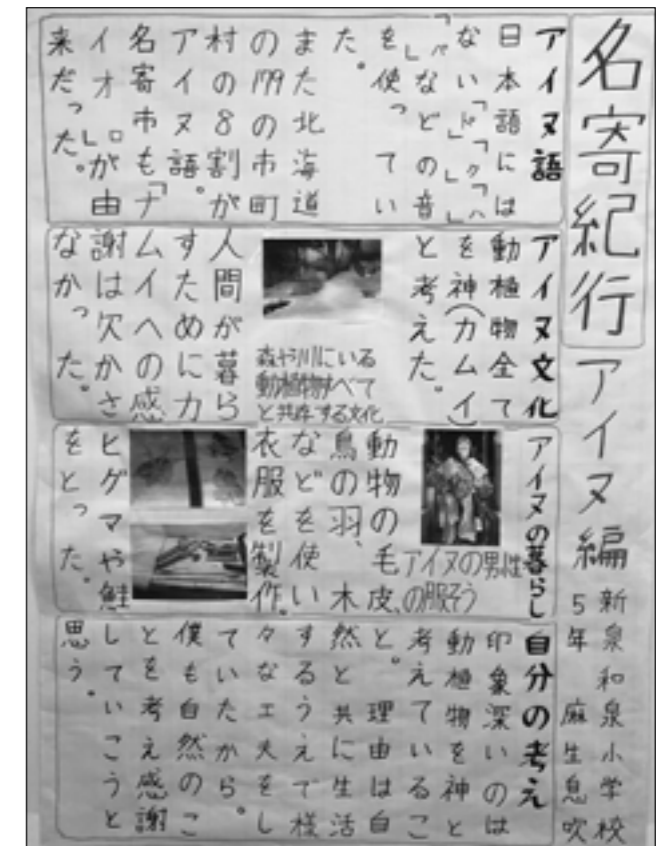 名寄紀行 アイヌ編
新泉和泉小学校
5年 麻生息吹
アイヌ語
日本語には
ない「ド」「ク」「ハ」
「パ」などの音
を使ってい
た。
また北海道
の179の市町
村の8割が
アイヌ語。
名寄市も「ナ
イオロ」が由
来だった。
アイヌ文化
動植物全て
を神(カムイ)
と考えた。
森や川にいる
動植物すべて
と共存する文化
人間が暮ら
すためにカ
ムイへの感
謝は欠かさ
なかった。
アイヌの暮らし
アイヌの男性
の服そう
動物の毛皮、
鳥の羽、木
などを使い
衣服を製作。
ヒグマや鮭
をとった。
自分の考え
印象深いのは
動植物を神と
考えているこ
と。理由は自
然と共に生活
するうえで様
々な工夫をし
ていたから。
僕も自然のこ
とを考え感謝
していこうと
思う。